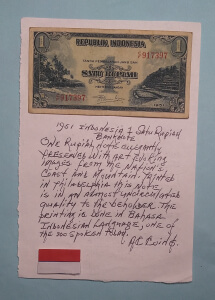 1
REPUBLIK INDONESIA
SATU RUPIAH
917397
917397
1951
1951 Indonesia 1 Satu Rupiah
Banknote
One Rupiah note currently
preserved with art
images from the nation's
coast and mountain. Printed
in Philadelphia this note
is in an almost uncirculated
quality to the beholder. The
printing is done in Bahasa
Indonesian language, one of
the 300 spoken today.